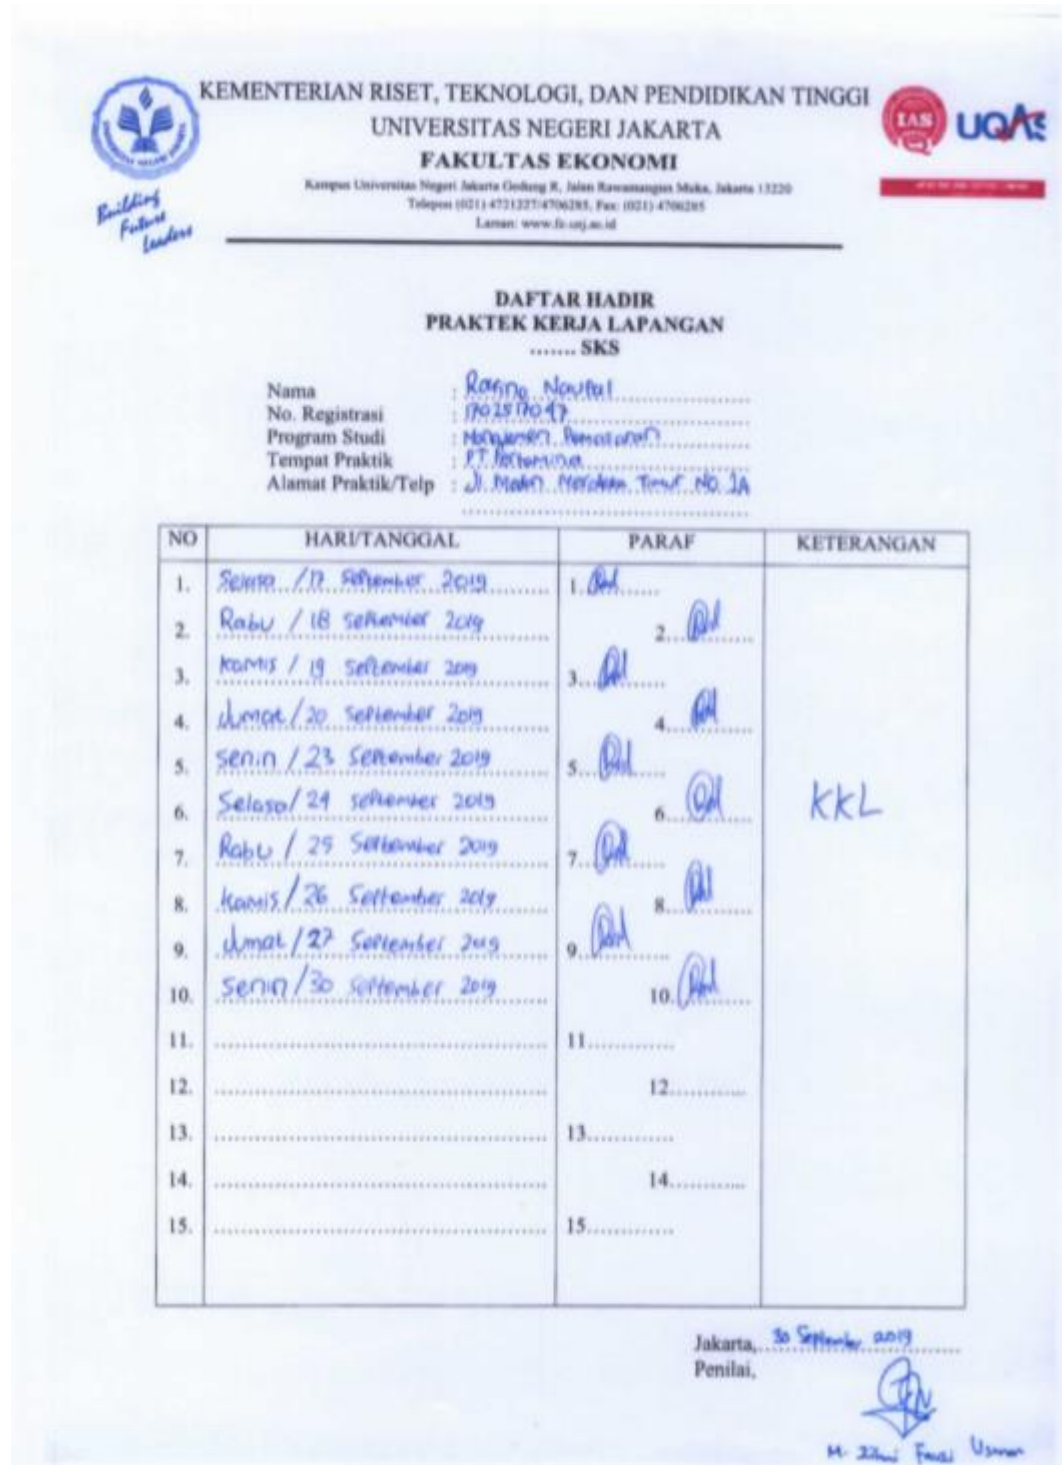 KEMENTERIAN RISET, TEKNOLOGI, DAN PENDIDIKAN TINGGI
UNIVERSITAS NEGERI JAKARTA
FAKULTAS EKONOMI
Kampus Universitas Negeri Jakarta Gedung R, Jalan Rawamangun Muka, Jakarta 13220
Telepon (021) 4721227/4706285, Fax: (021) 4706285
Laman: www.fe.unj.ac.id
Building
Future
Leaders
IAS
UQAS
DAFTAR HADIR
PRAKTEK KERJA LAPANGAN
....... SKS
Nama : Naufal
No. Registrasi : 1702517047
Program Studi : Manajemen Pemasaran
Tempat Praktik : PT. Pertamina
Alamat Praktik/Telp : Jl. Medan Merdeka Timur No. 1A
NO HARI/TANGGAL PARAF KETERANGAN
1. Selasa / 17 September 2019 1.
2. Rabu / 18 September 2019 2.
3. Kamis / 19 September 2019 3.
4. Jumat / 20 September 2019 4.
5. Senin / 23 September 2019 5.
6. Selasa / 24 September 2019 6. KKL
7. Rabu / 25 September 2019 7.
8. Kamis / 26 September 2019 8.
9. Jumat / 27 September 2019 9.
10. Senin / 30 September 2019 10.
11. 11.
12. 12.
13. 13.
14. 14.
15. 15.
Jakarta, 30 September 2019
Penilai,
M. Fauzi Usman